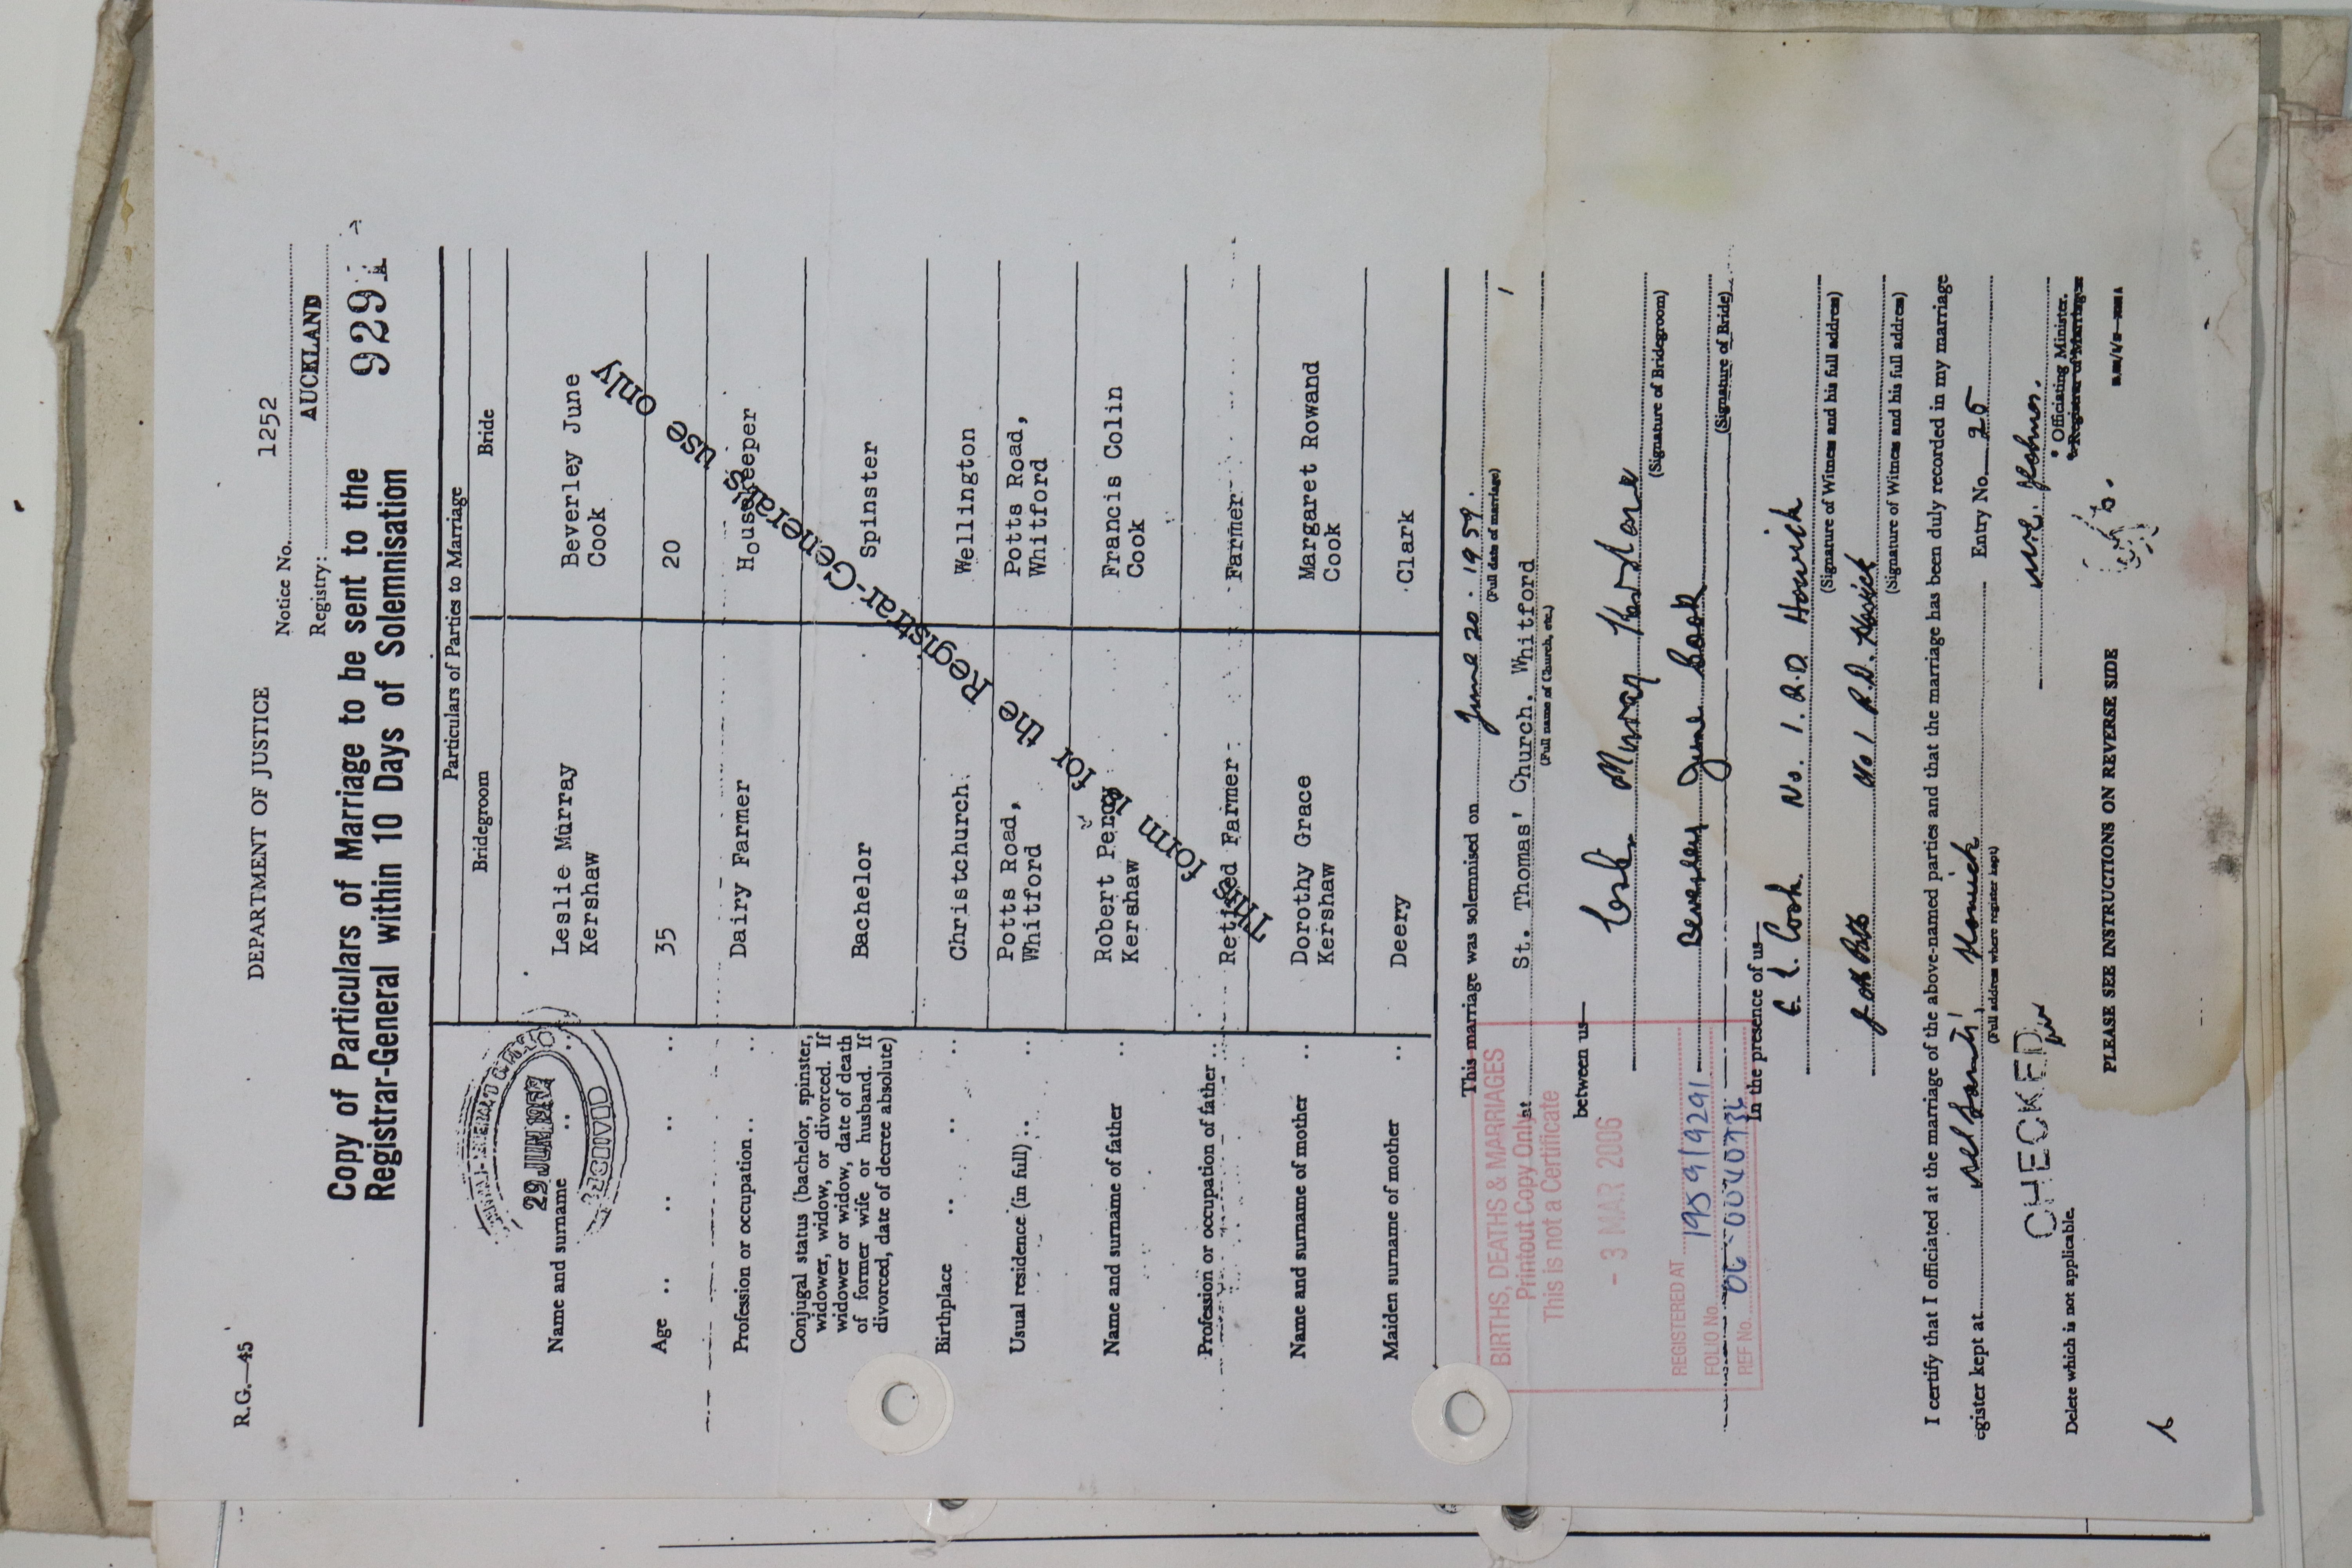 R.G.—45
DEPARTMENT OF JUSTICE
Notice No. 1252
Registry: AUCKLAND
Copy of Particulars of Marriage to be sent to the
Registrar-General within 10 Days of Solemnisation
9291
Particulars of Parties to Marriage
Bridegroom Bride
29 JUN 1959
RECEIVED
Name and surname .. .. Leslie Murray Kershaw Beverley June Cook
Age .. .. .. .. 35 20
Profession or occupation .. .. Dairy Farmer Housekeeper
Conjugal status (bachelor, spinster,
widower, widow, or divorced. If
widower or widow, date of death
of former wife or husband. If
divorced, date of decree absolute)
Bachelor Spinster
Birthplace .. .. .. Christchurch Wellington
Usual residence (in full) .. .. Potts Road, Whitford Potts Road, Whitford
Name and surname of father .. Robert Percy Kershaw Francis Colin Cook
Profession or occupation of father .. Retired Farmer Farmer
Name and surname of mother .. Dorothy Grace Kershaw Margaret Rowand Cook
Maiden surname of mother .. Deery Clark
This form is for the Registrar-General's use only
This marriage was solemnised on June 20. 1959.
(Full date of marriage)
at St. Thomas' Church, Whitford
(Full name of Church, etc.)
between us—
Murray Kershaw
(Signature of Bridegroom)
Beverley June Cook
(Signature of Bride)
In the presence of us—
Cook. No. 1. R.D. Howick
(Signature of Witness and his full address)
No 1 R.D. Howick
(Signature of Witness and his full address)
BIRTHS, DEATHS & MARRIAGES
Printout Copy Only
This is not a Certificate
- 3 MAR 2006
REGISTERED AT
FOLIO No. 1959/9291
REF No.
I certify that I officiated at the marriage of the above-named parties and that the marriage has been duly recorded in my marriage
egister kept at Howick Entry No. 25
(Full address where register kept)
CHECKED
* Officiating Minister.
* Registrar of Marriages
Delete which is not applicable.
PLEASE SEE INSTRUCTIONS ON REVERSE SIDE